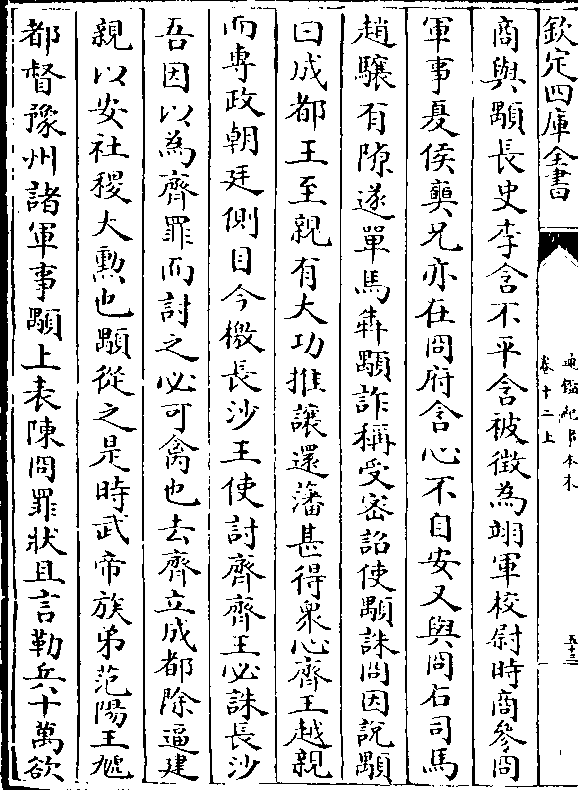 欽定四庫全書
通鑑紀事本末
卷十二上
五十三
商與顒長史李含不平含被徵為翊軍校尉時商參冏
軍事夏侯奭兄亦在冏府含心不自安又與冏右司馬
趙驤有隙遂單馬奔顒詐稱受密詔使顒誅冏因說顒
曰成都王至親有大功推讓還藩甚得衆心齊王越親
而專政朝廷側目今檄長沙王使討齊齊王必誅長沙
吾因以為齊罪而討之必可禽也去齊立成都除逼建
親以安社稷大勲也顒從之是時武帝族弟范陽王虓
都督豫州諸軍事顒上表陳冏罪狀且言勒兵十萬欲